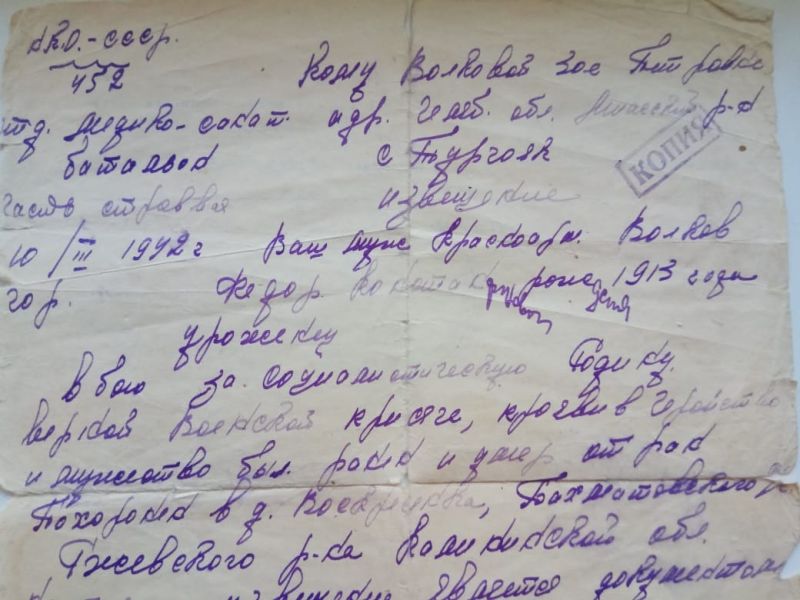 НКО.-СССР. Кому Волковой Зое Петровне
452
отд. медико-санит. адр. Челяб. обл. Миасский р-н
батальон с Тургояк
КОПИЯ
часть строевая извещение
10/III 1942 г Ваш муж красноарм. Волков
гор. Федор рожд. 1913 года
уроженец
В бою за социалистическую Родину.
верной воинской присяге, проявив геройство
и мужество был ранен и умер от ран
Похоронен в д. Воскресенка,
Гжевского р-на обл.
извещение является документом